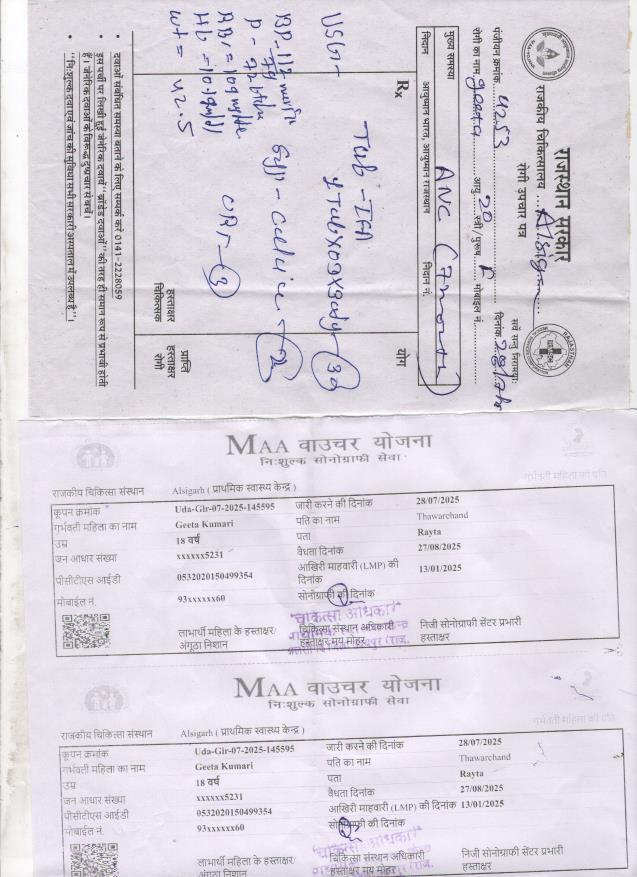 राजस्थान सरकार
राजकीय चिकित्सालय ... Alsig......
रोगी उपचार पत्र
सर्वे सन्तु निरामयः
पंजीयन क्रमांक 4253 दिनांक
रोगी का नाम geeta आयु 20 स्त्री/पुरूष F मोबाइल नं.
मुख्य समस्या ANC (7 month)
निदान आयुष्मान भारत, आयुष्मान राजस्थान निदान नं.
Rx योग
USG-
Tab - IFA
30
BP- 112
P- 72
Syp-
Hb = 10.1 gm/dl
wt = 42.5
हस्ताक्षर चिकित्सक
प्राप्ति हस्ताक्षर रोगी
• दवाओं संबंधित समस्या बताने के लिए सम्पर्क करें 0141-2228059
• इस पर्ची पर लिखी हुई जेनेरिक दवायें "ब्रांडेड दवाओं" की तरह ही समान रूप से प्रभावी होती
हैं। जेनेरिक दवाओं के विरूद्ध दुष्प्रचार से बचें।
• "निःशुल्क दवा एवं जांच की सुविधा सभी सरकारी अस्पताल में उपलब्ध है"।
MAA वाउचर योजना
निःशुल्क सोनोग्राफी सेवा
गर्भवती महिला की प्रति
राजकीय चिकित्सा संस्थान Alsigarh ( प्राथमिक स्वास्थ्य केन्द्र )
कूपन क्रमांक Uda-Gir-07-2025-145595 जारी करने की दिनांक 28/07/2025
गर्भवती महिला का नाम Geeta Kumari पति का नाम Thawarchand
उम्र 18 वर्ष पता Rayta
जन आधार संख्या xxxxxx5231 वैधता दिनांक 27/08/2025
पीसीटीएस आईडी 0532020150499354 आखिरी माहवारी (LMP) की दिनांक 13/01/2025
मोबाईल नं. 93xxxxxx60 सोनोग्राफी की दिनांक
चिकित्सा अधिकारी
लाभार्थी महिला के हस्ताक्षर/ चिकित्सा संस्थान अधिकारी निजी सोनोग्राफी सेंटर प्रभारी
अंगूठा निशान हस्ताक्षर मय मोहर हस्ताक्षर
MAA वाउचर योजना
निःशुल्क सोनोग्राफी सेवा
गर्भवती महिला की प्रति
राजकीय चिकित्सा संस्थान Alsigarh ( प्राथमिक स्वास्थ्य केन्द्र )
कूपन क्रमांक Uda-Gir-07-2025-145595 जारी करने की दिनांक 28/07/2025
गर्भवती महिला का नाम Geeta Kumari पति का नाम Thawarchand
उम्र 18 वर्ष पता Rayta
जन आधार संख्या xxxxxx5231 वैधता दिनांक 27/08/2025
पीसीटीएस आईडी 0532020150499354 आखिरी माहवारी (LMP) की दिनांक 13/01/2025
मोबाईल नं. 93xxxxxx60 सोनोग्राफी की दिनांक
चिकित्सा अधिकारी
लाभार्थी महिला के हस्ताक्षर/ चिकित्सा संस्थान अधिकारी निजी सोनोग्राफी सेंटर प्रभारी
अंगूठा निशान हस्ताक्षर मय मोहर हस्ताक्षर